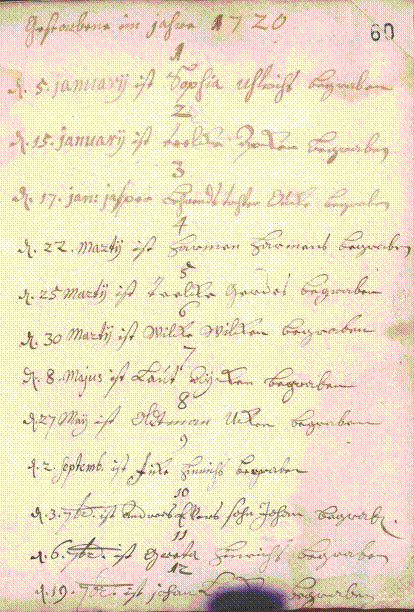 Gestorbene im Jahre 1720
60
1
d. 5. januarij ist Sophia Uhlrichs begraben
2
d. 15. january ist begraben
3
d. 17. jan: begraben
4
d. 22. Martij ist Harmen Harmens begraben
5
d. 25 Martij ist Gerdes begraben
6
d. 30 Martij ist Wilke Wilken begraben
7
d. 8. Majus ist begraben
8
d. 27 Maij ist Oltman begraben
9
d. 2. Septemb. ist Hinrichs begraben
10
d. 3. 7br. ist sohn Johan begrab.
11
d. 6. 7br. ist Greta Hinrichs begraben
12
d. 19. 7br. ist johan begraben